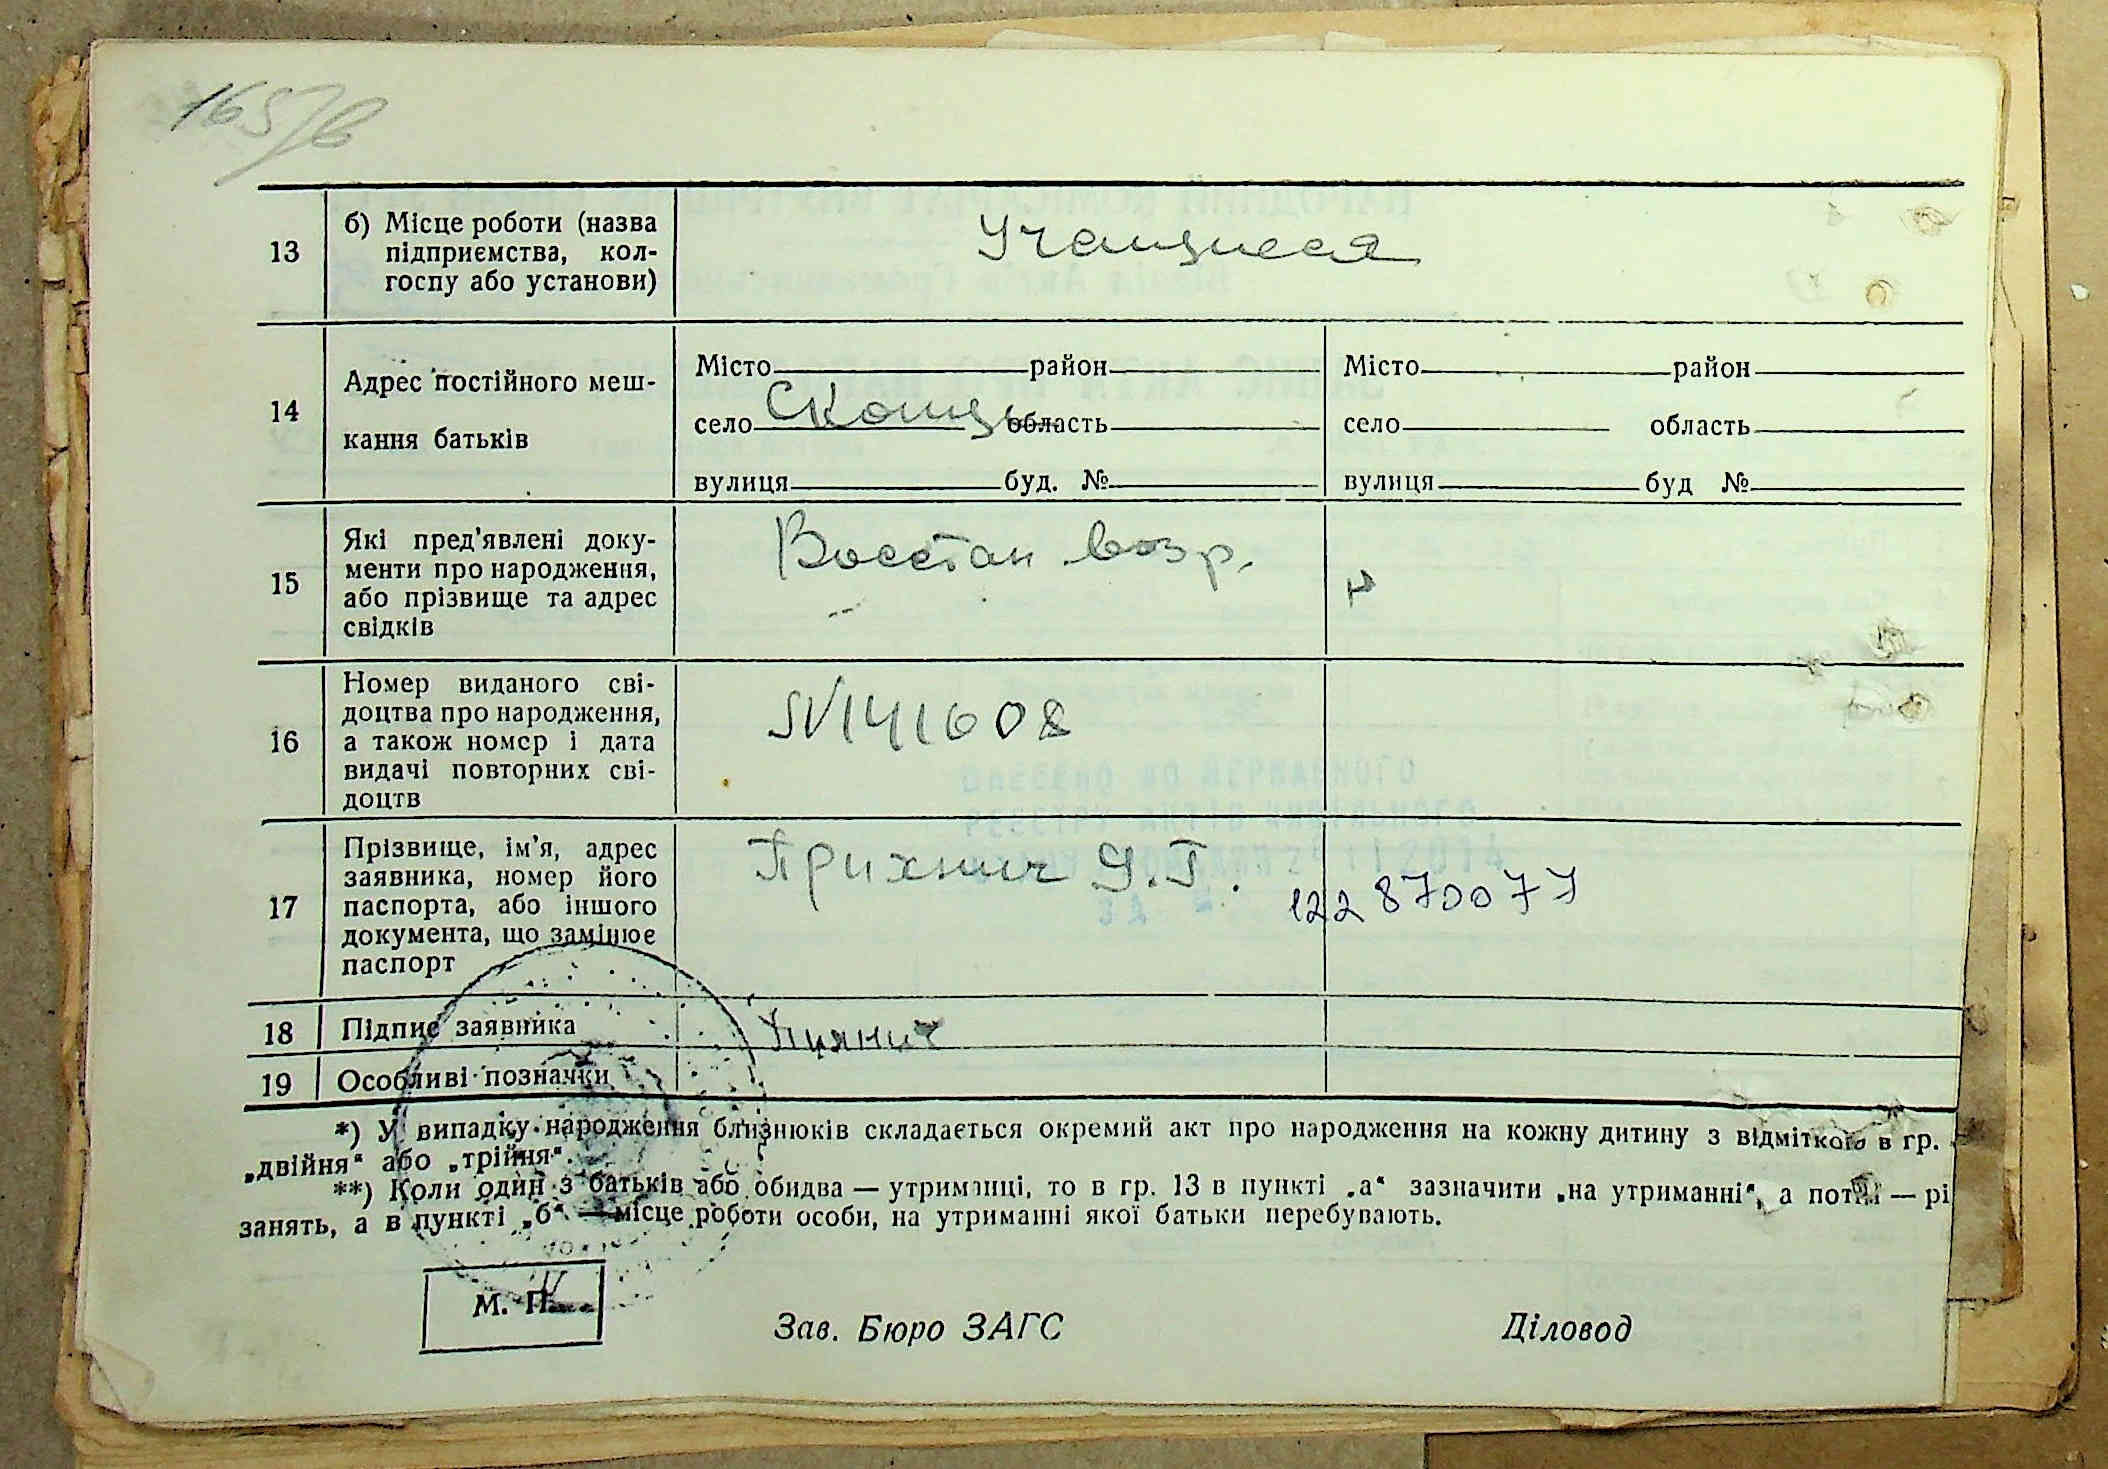 165/в
13
б) Місце роботи (назва
підприємства, кол-
госпу або установи)
Учащиеся
14
Адрес постійного меш-
кання батьків
Місто район
село Сконцы область
вулиця буд. №
Місто район
село область
вулиця буд №
15
Які пред'явлені доку-
менти про народження,
або прізвище та адрес
свідків
Восстан возр.
16
Номер виданого сві-
доцтва про народження,
а також номер і дата
видачі повторних сві-
доцтв
141608
17
Прізвище, ім'я, адрес
заявника, номер його
паспорта, або іншого
документа, що замінює
паспорт
Прихнич У.Г.
122870077
18
Підпис заявника
19
Особливі позначки
*) У випадку народження близнюків складається окремий акт про народження на кожну дитину з відміткою в гр.
„двійня“ або „трійня“.
**) Коли один з батьків або обидва — утриманці, то в гр. 13 в пункті „а“ зазначити „на утриманні“, а потім — рі
занять, а в пункті „б“ — місце роботи особи, на утриманні якої батьки перебувають.
М. П.
Зав. Бюро ЗАГС
Діловод